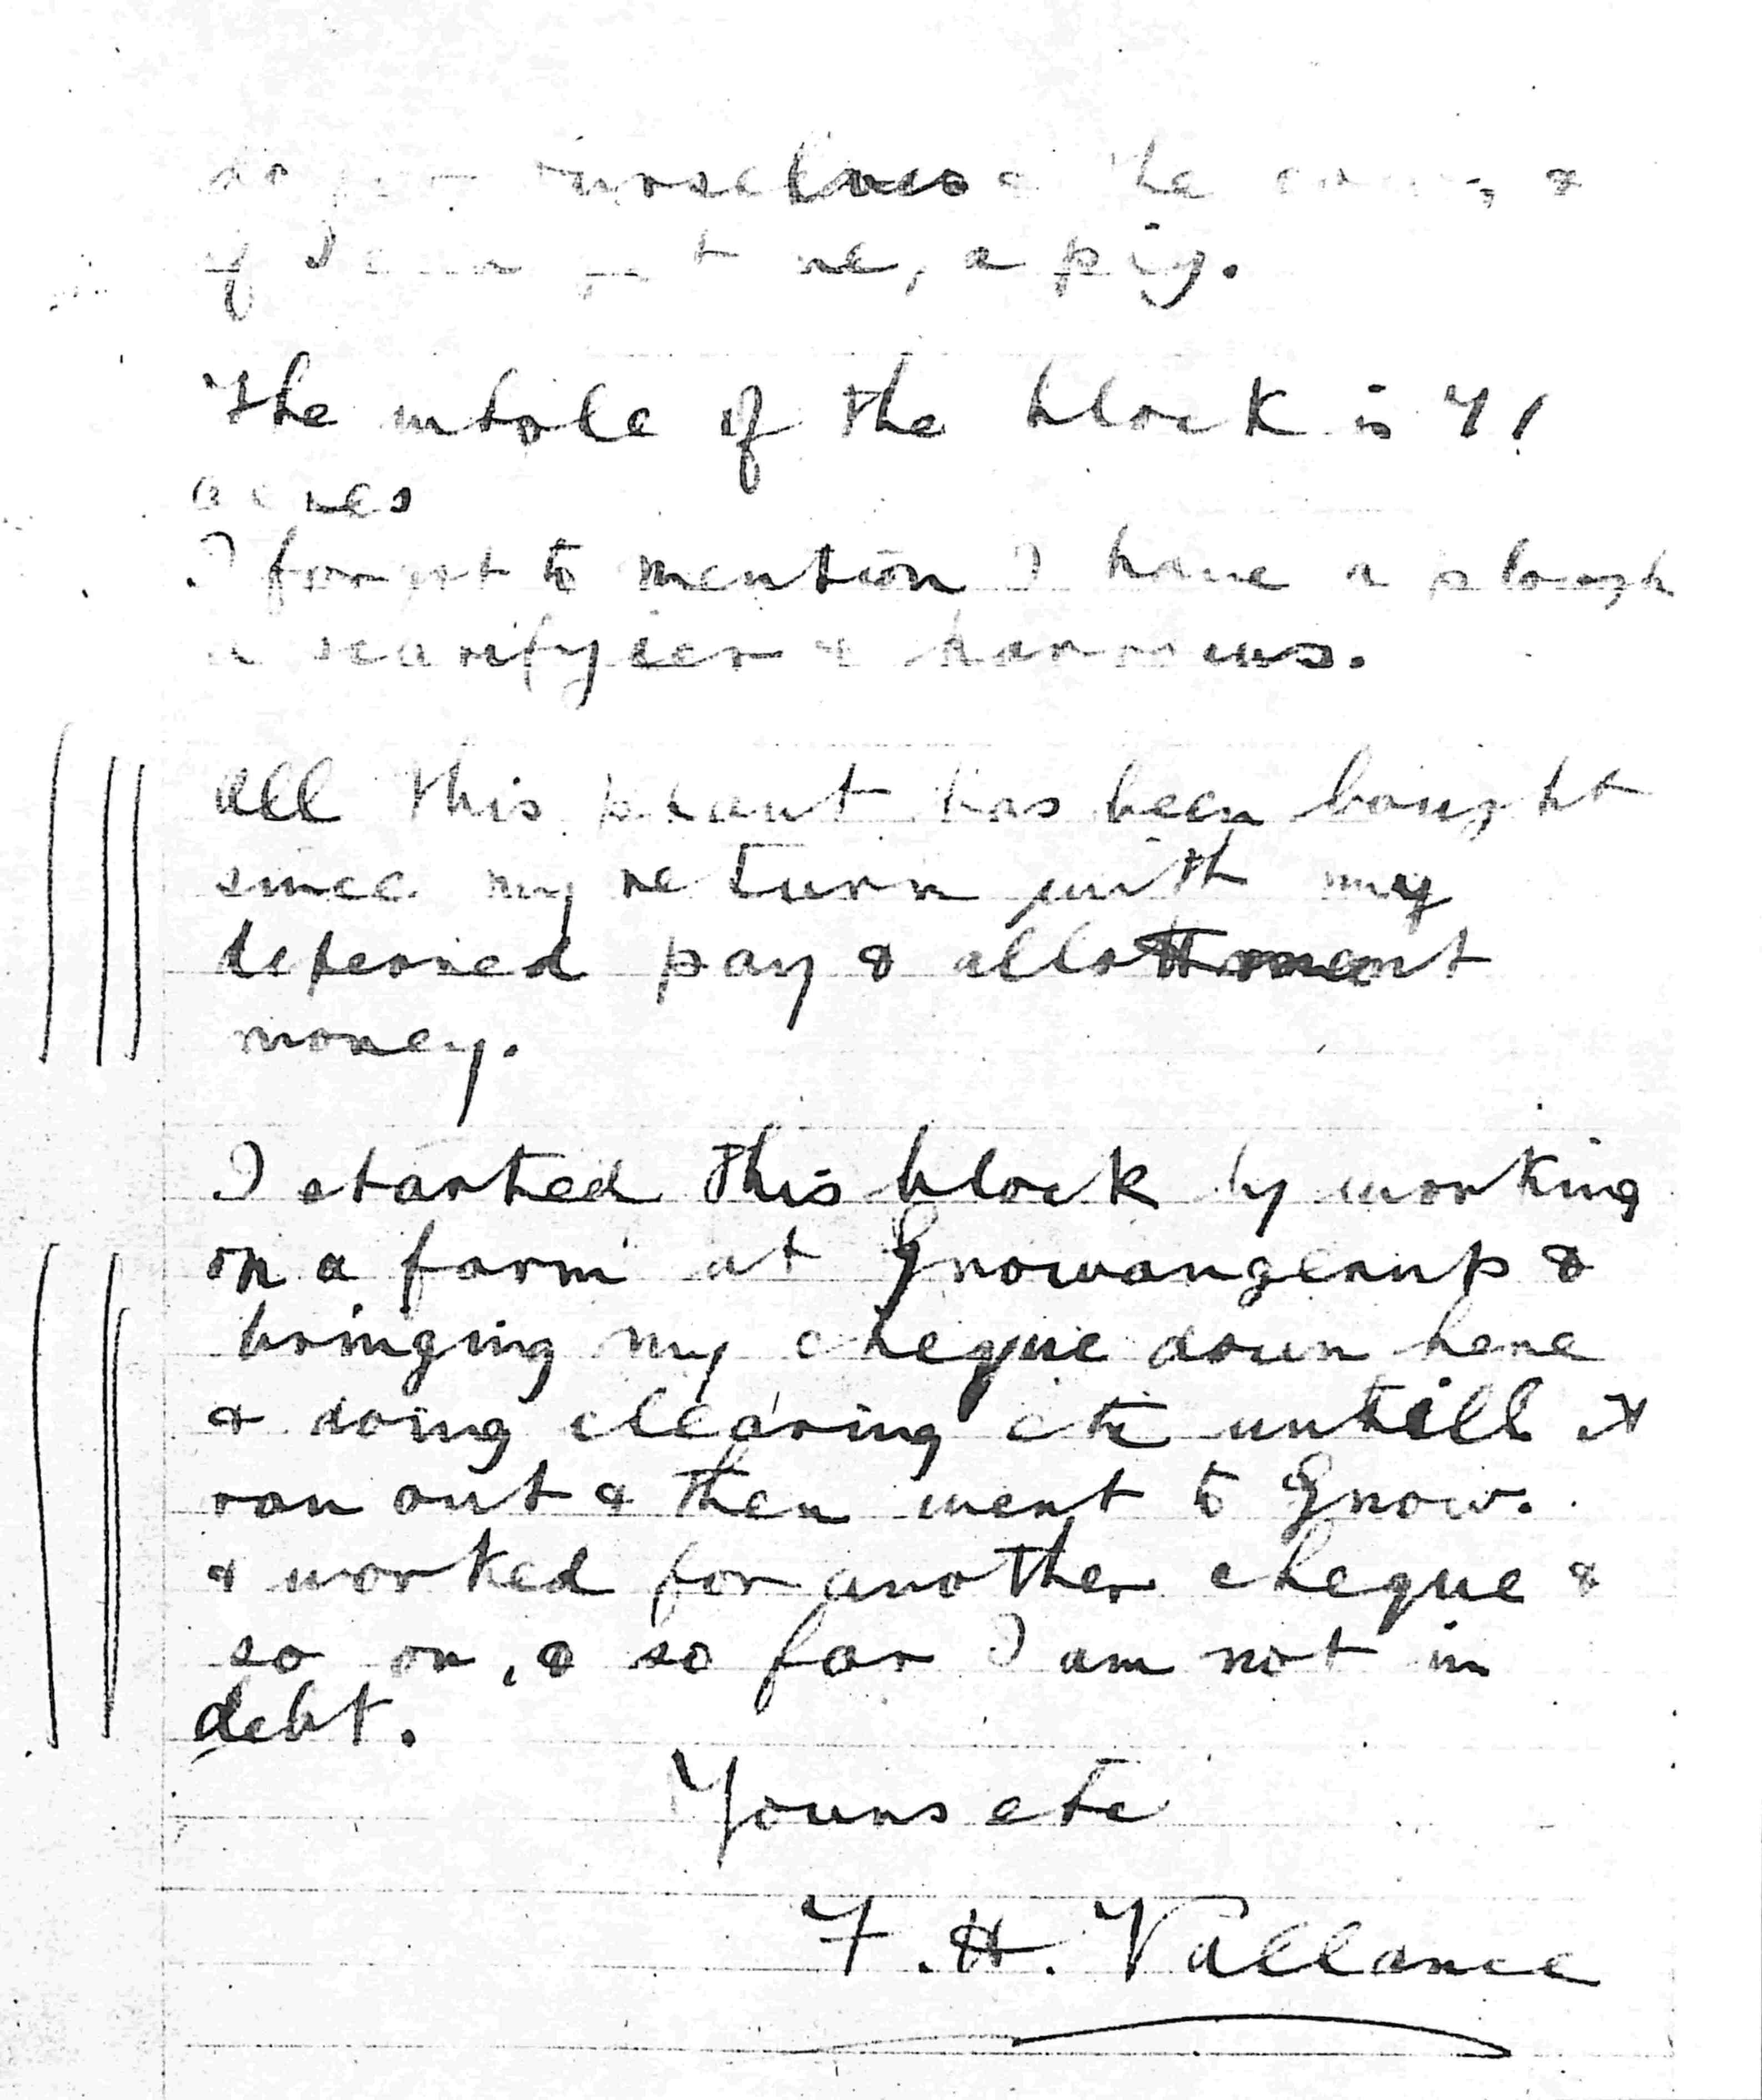 do for ourselves & the cows, &
if I can get one, a pig.
The whole of the block is 41
acres
I forgot to mention I have a plough
a scarifyier & harrows.
All this plant has been bought
since my return with my
deferred pay & allottment
money.
I started this block by working
on a farm at Gnowangerup &
bringing my cheque down here
& doing clearing etc untill it
ran out & then went to Gnow.
& worked for another cheque &
so on, & so far I am not in
debt.
Yours etc
F. H. Vallance